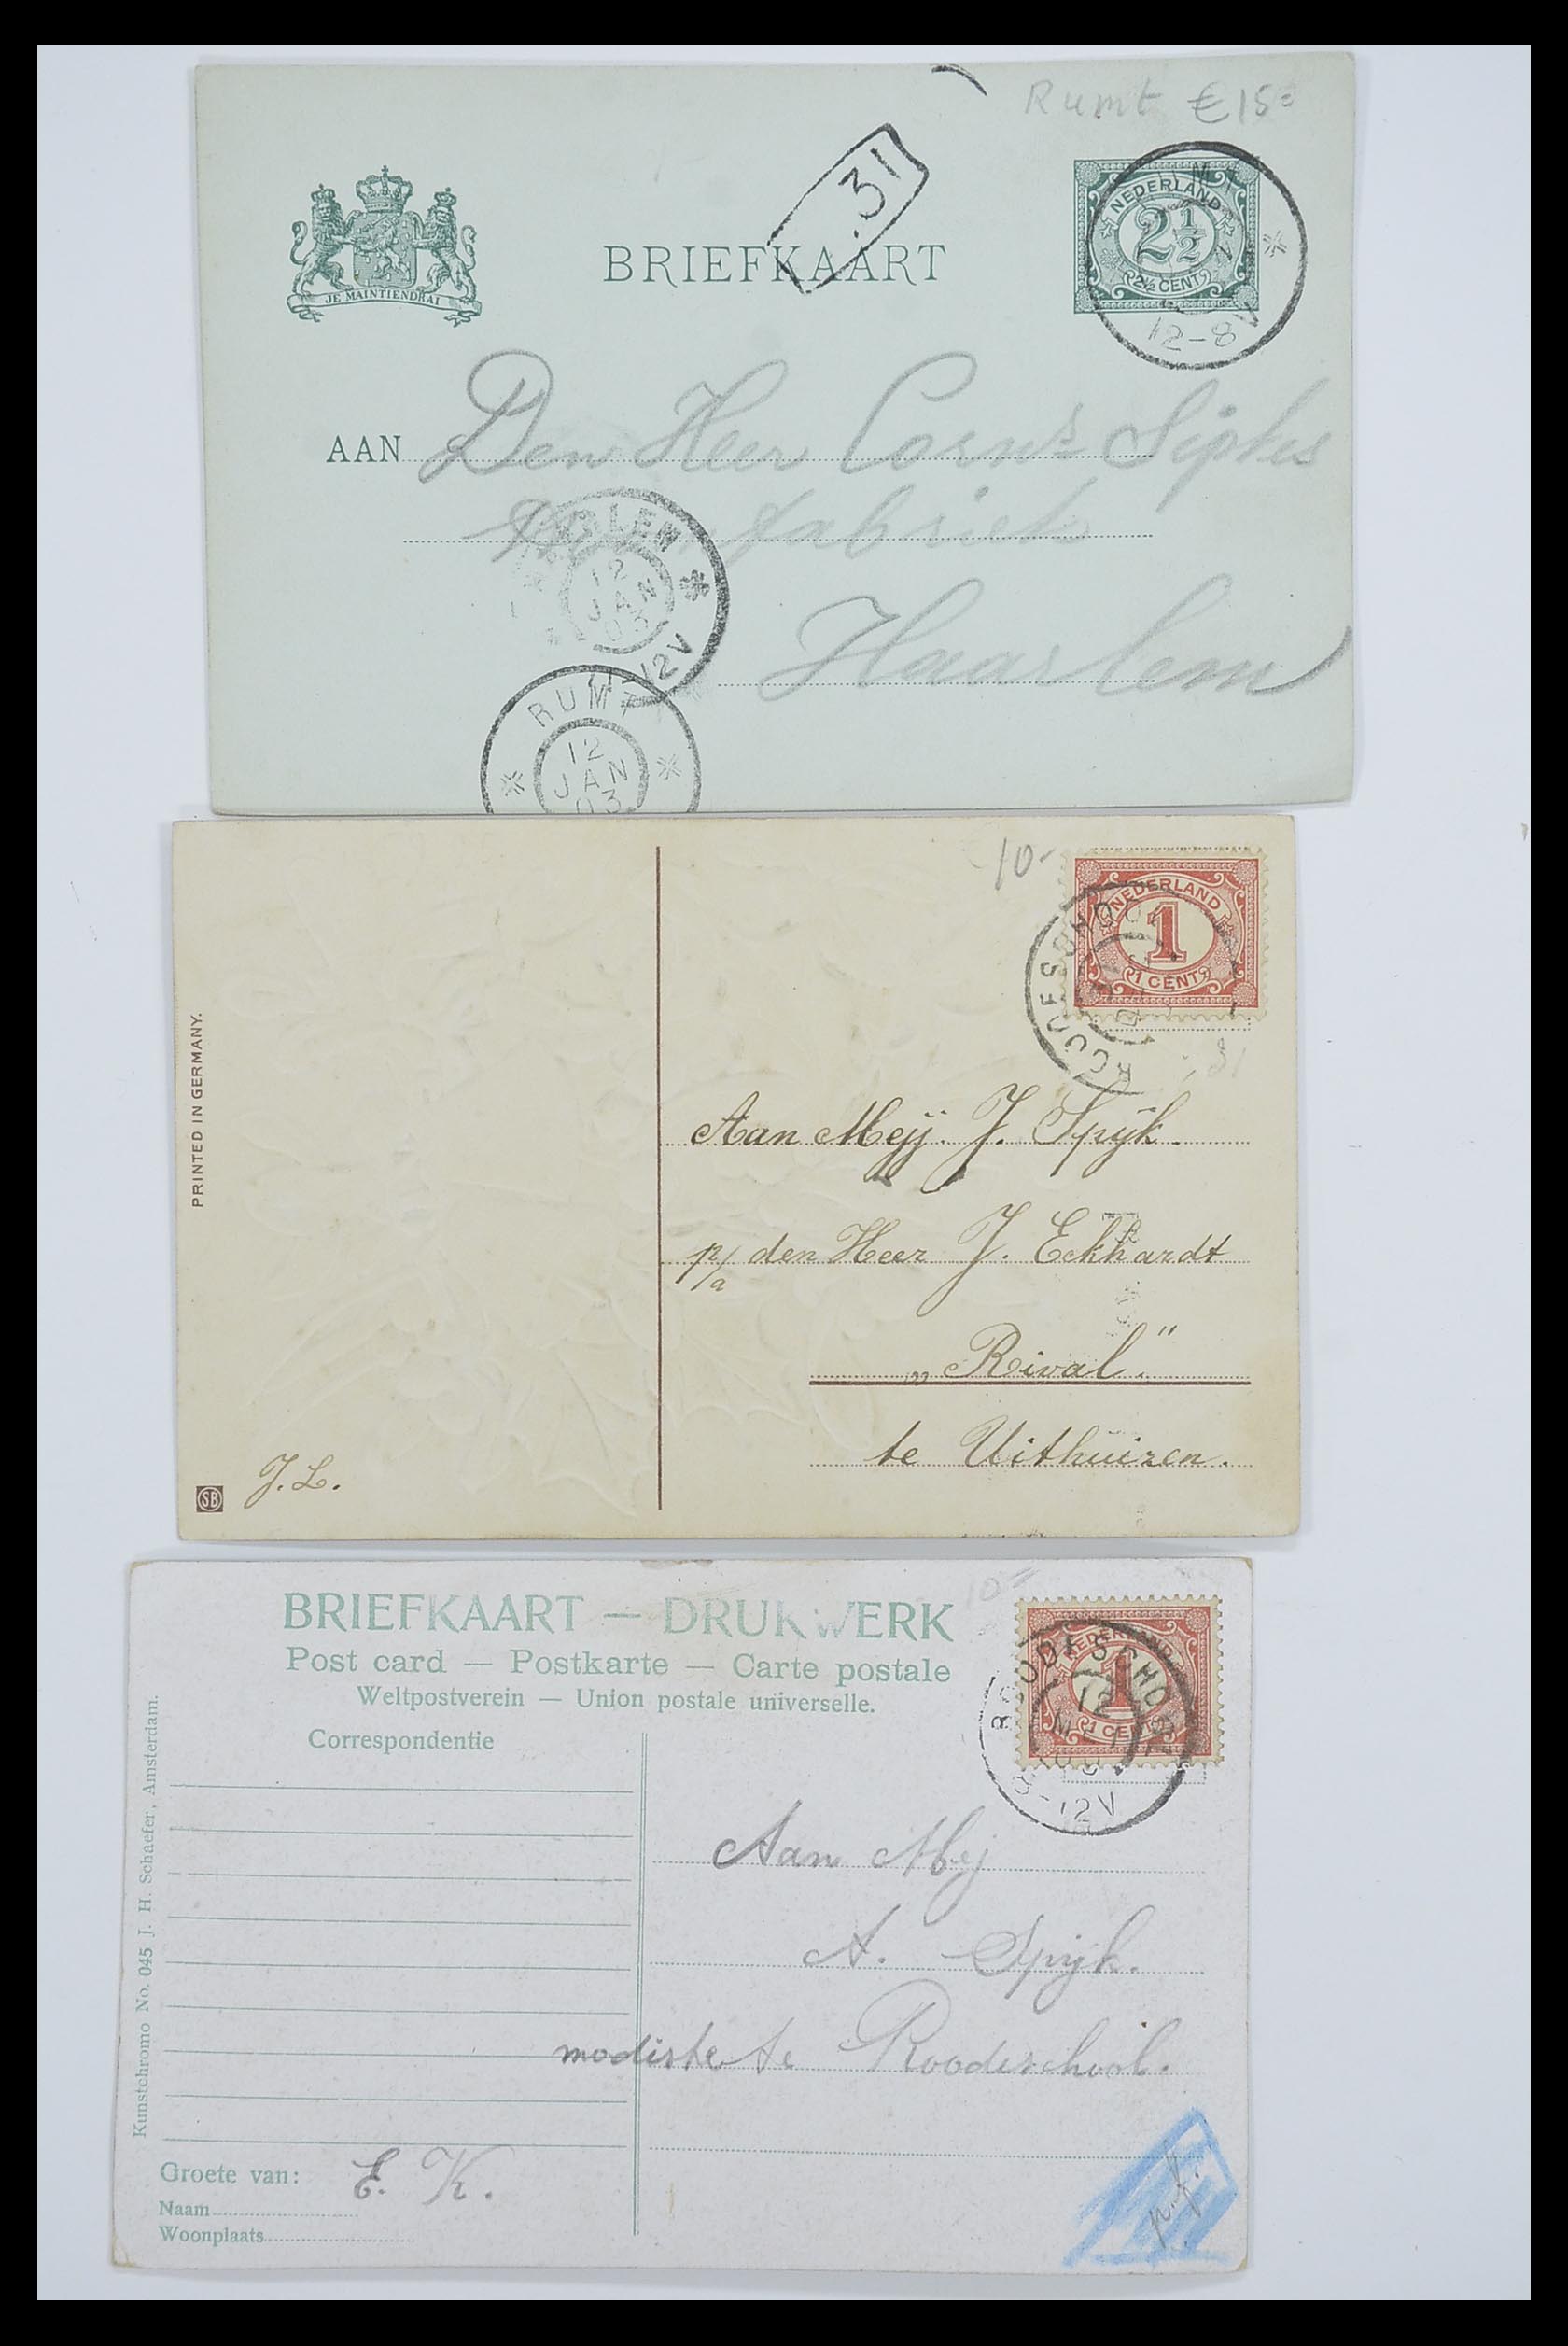 Rumt €15=
.31
NEDERLAND
2½
2½ CENT
12-8V
JE MAINTIENDRAI
BRIEFKAART
AAN Den Heer Corns
fabriek
HAARLEM
12
JAN
03
12V
Haarlem
RUMT
12
JAN
03
10-
NEDERLAND
1
1 CENT
ROODESCHOOL
PRINTED IN GERMANY.
Aan Mejj. J. Spijk.
p/a den Heer J. Eckhardt
„Rival."
te Uithuizen.
SB
J.L.
10=
BRIEFKAART — DRUKWERK
Post card — Postkarte — Carte postale
Weltpostverein — Union postale universelle.
NEDERLAND
1
1 CENT
ROODESCHOOL
12
MEI
8-12V
Correspondentie
Kunstchromo No. 045 J. H. Schaefer, Amsterdam.
Aan Mej
A. Spijk.
modiste te Roodeschool.
Groete van: E. K.
Naam
Woonplaats
p.f.